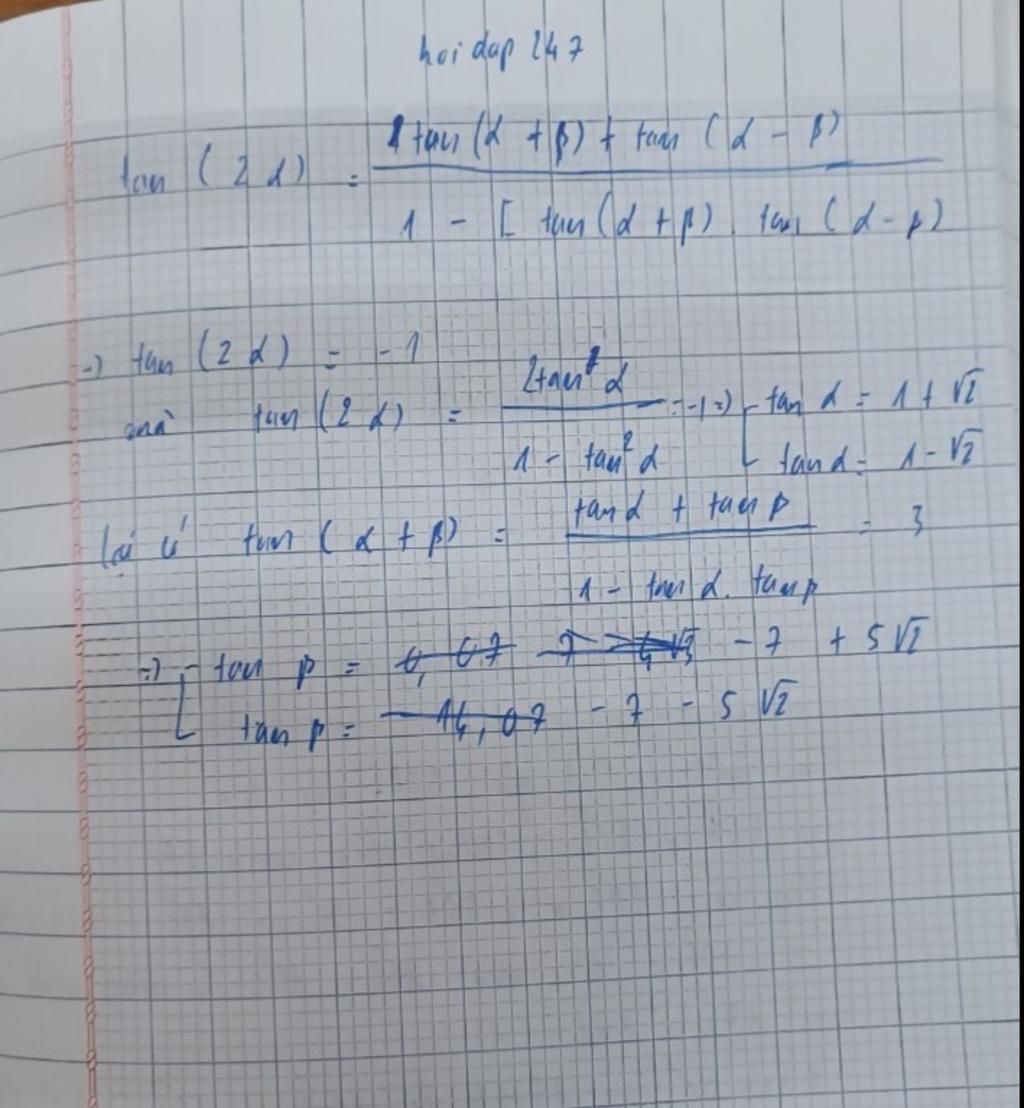 hoi dap 247
tan (2α) = tan(α + β) + tan (α - β) / 1 - [ tan(α + β) . tan (α - β)
=) tan (2α) = -1
mà tan (2α) = 2tan α / 1 - tan² α = -1 =) [ tan α = 1 + √2
tan α = 1 - √2
lại có tan (α + β) = tan α + tan β / 1 - tan α . tan β = 3
=) [ tan β = - 7 + 5√2
tan β = - 7 - 5√2